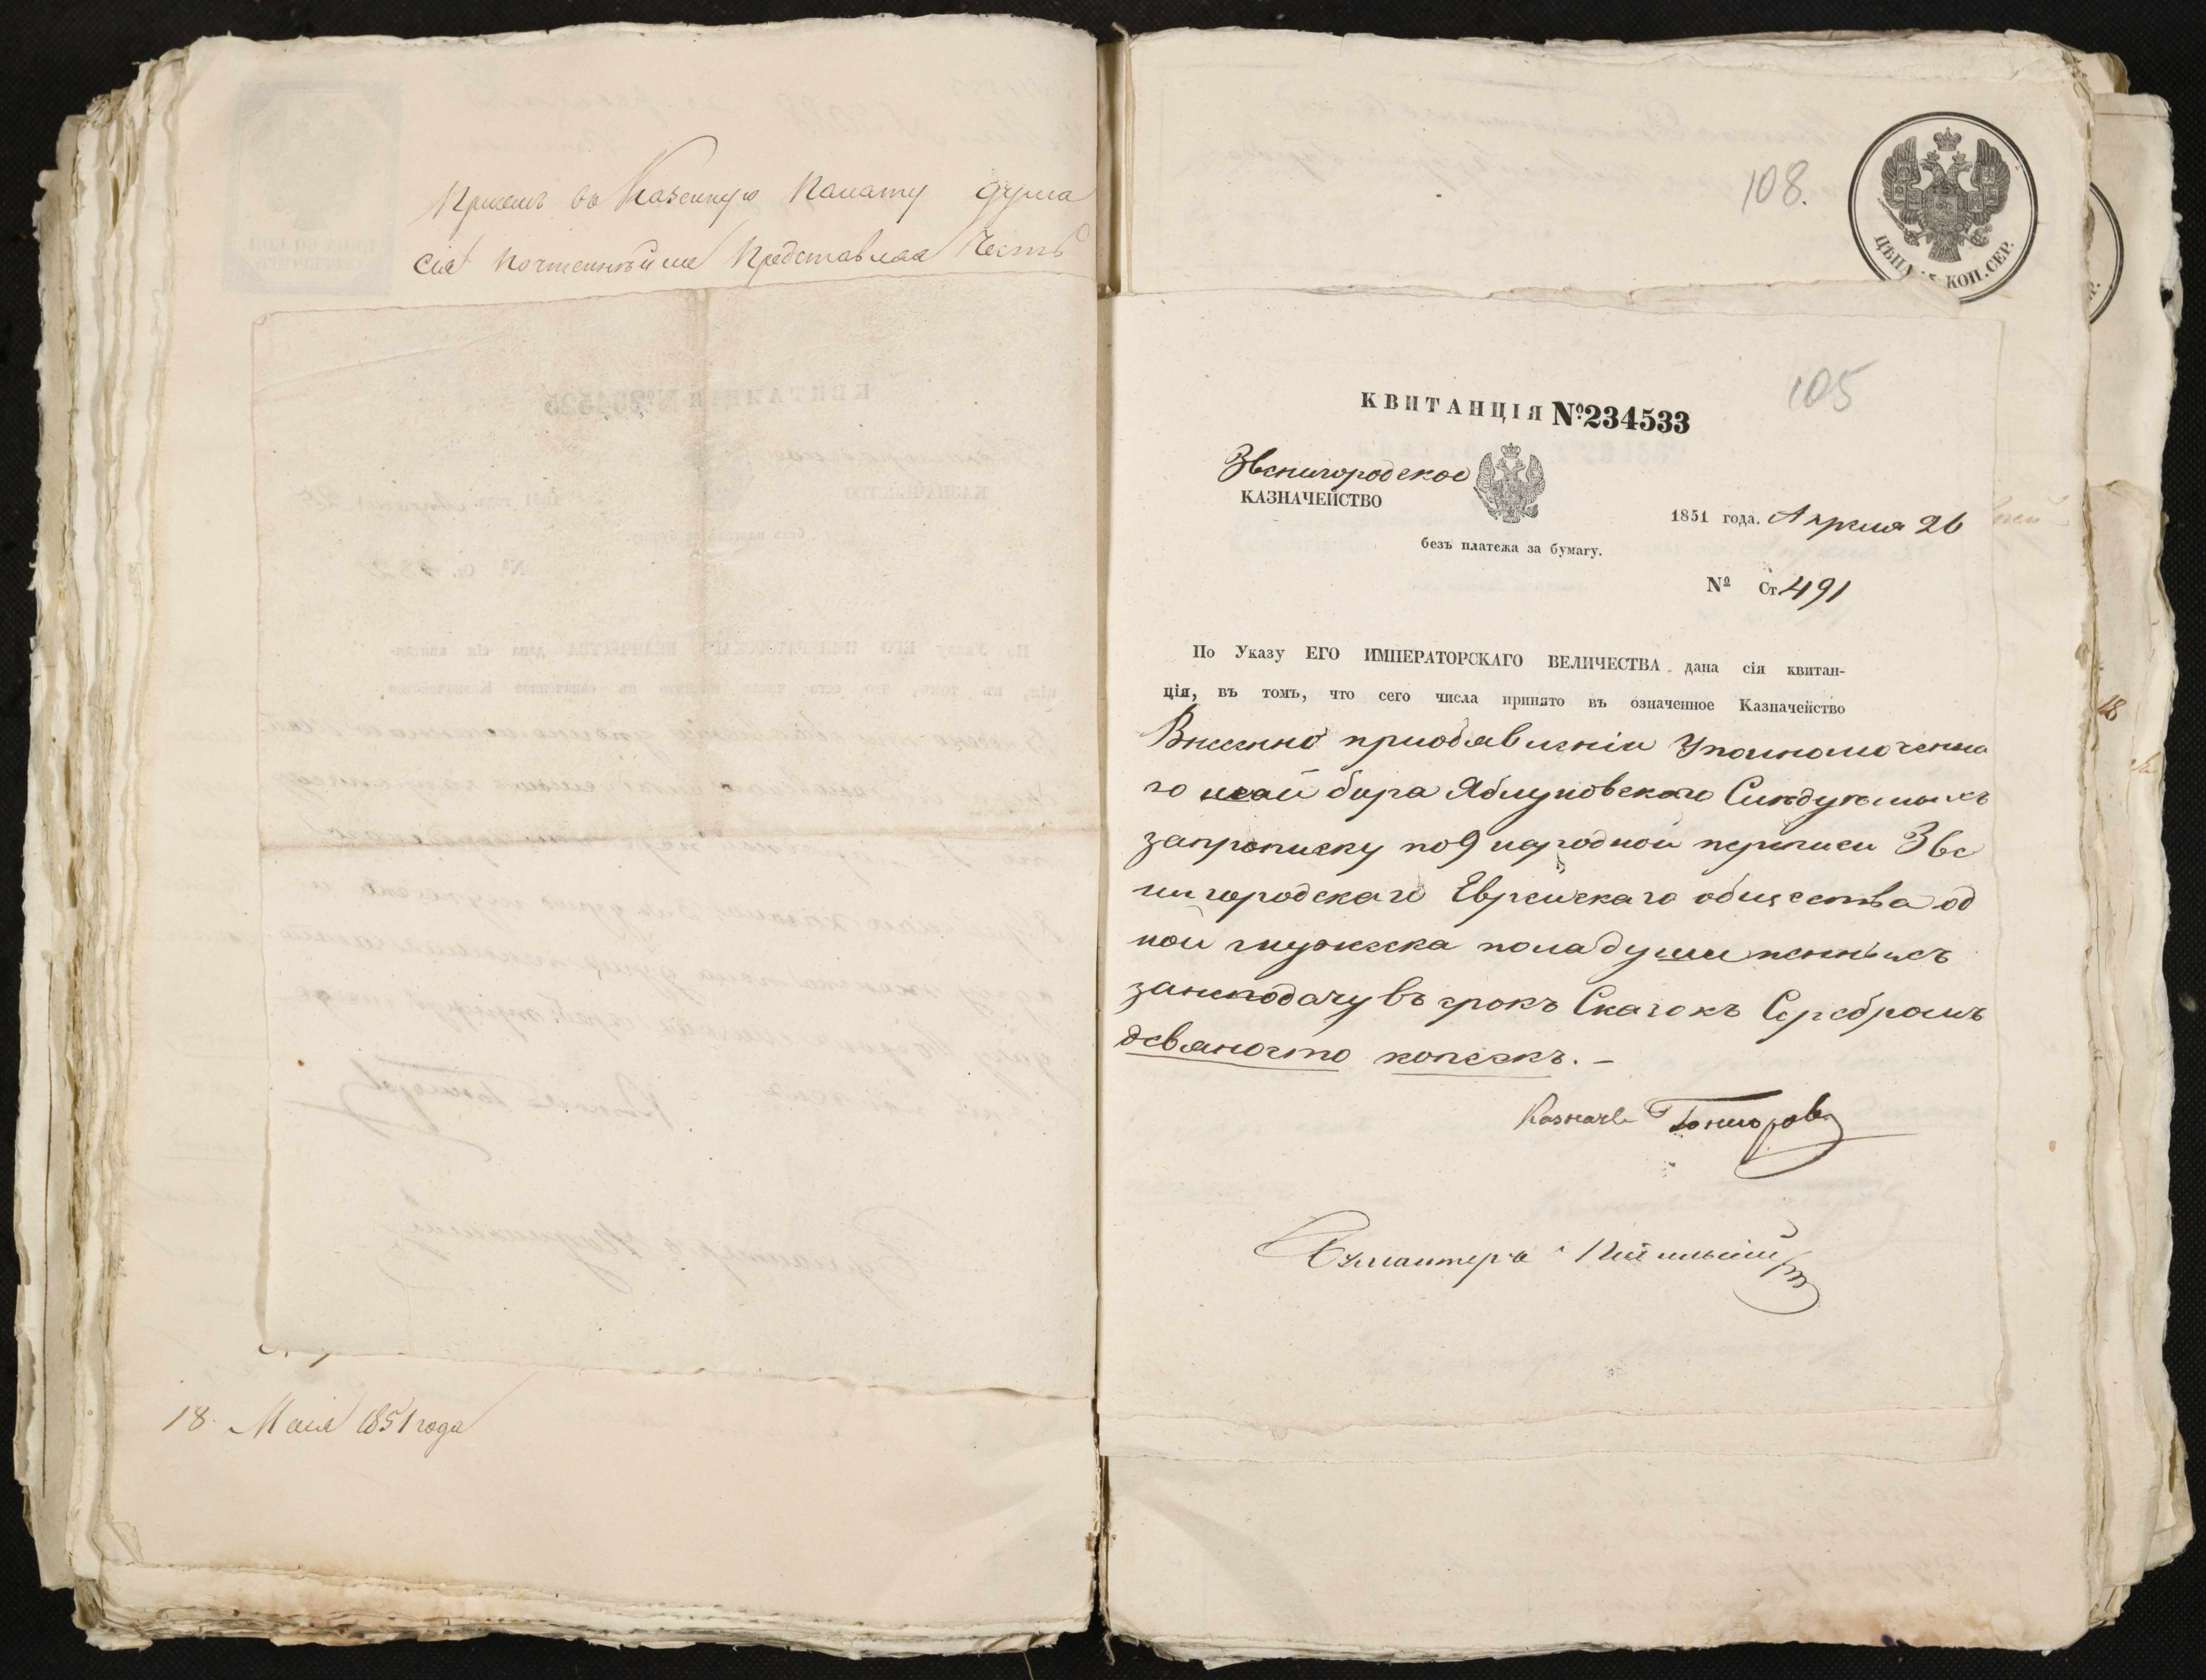 При семъ въ Казенную Палату дума
сія почтеннѣйше представляя честь
18 Маія 1851 года
108.
ЦѢНА КОП. СЕР.
105
КВИТАНЦІЯ №234533
Звенигородское
КАЗНАЧЕЙСТВО
1851 года. Апреля 26
безъ платежа за бумагу.
№ Ст. 491
По Указу ЕГО ИМПЕРАТОРСКАГО ВЕЛИЧЕСТВА дана сія квитан-
ція, въ томъ, что сего числа принято въ означенное Казначейство
Внесенно приобявленіи Уполномоченна
го бира Яблуновскаго
запрописку по 9 народной переписи Зве
нигородскаго Еврейскаго общества од
ной мужеска пола души пенныхъ
занеподачу въ срокъ Сказокъ Серебромъ
девяносто копеекъ. –
Казначе
Бухгалтеръ